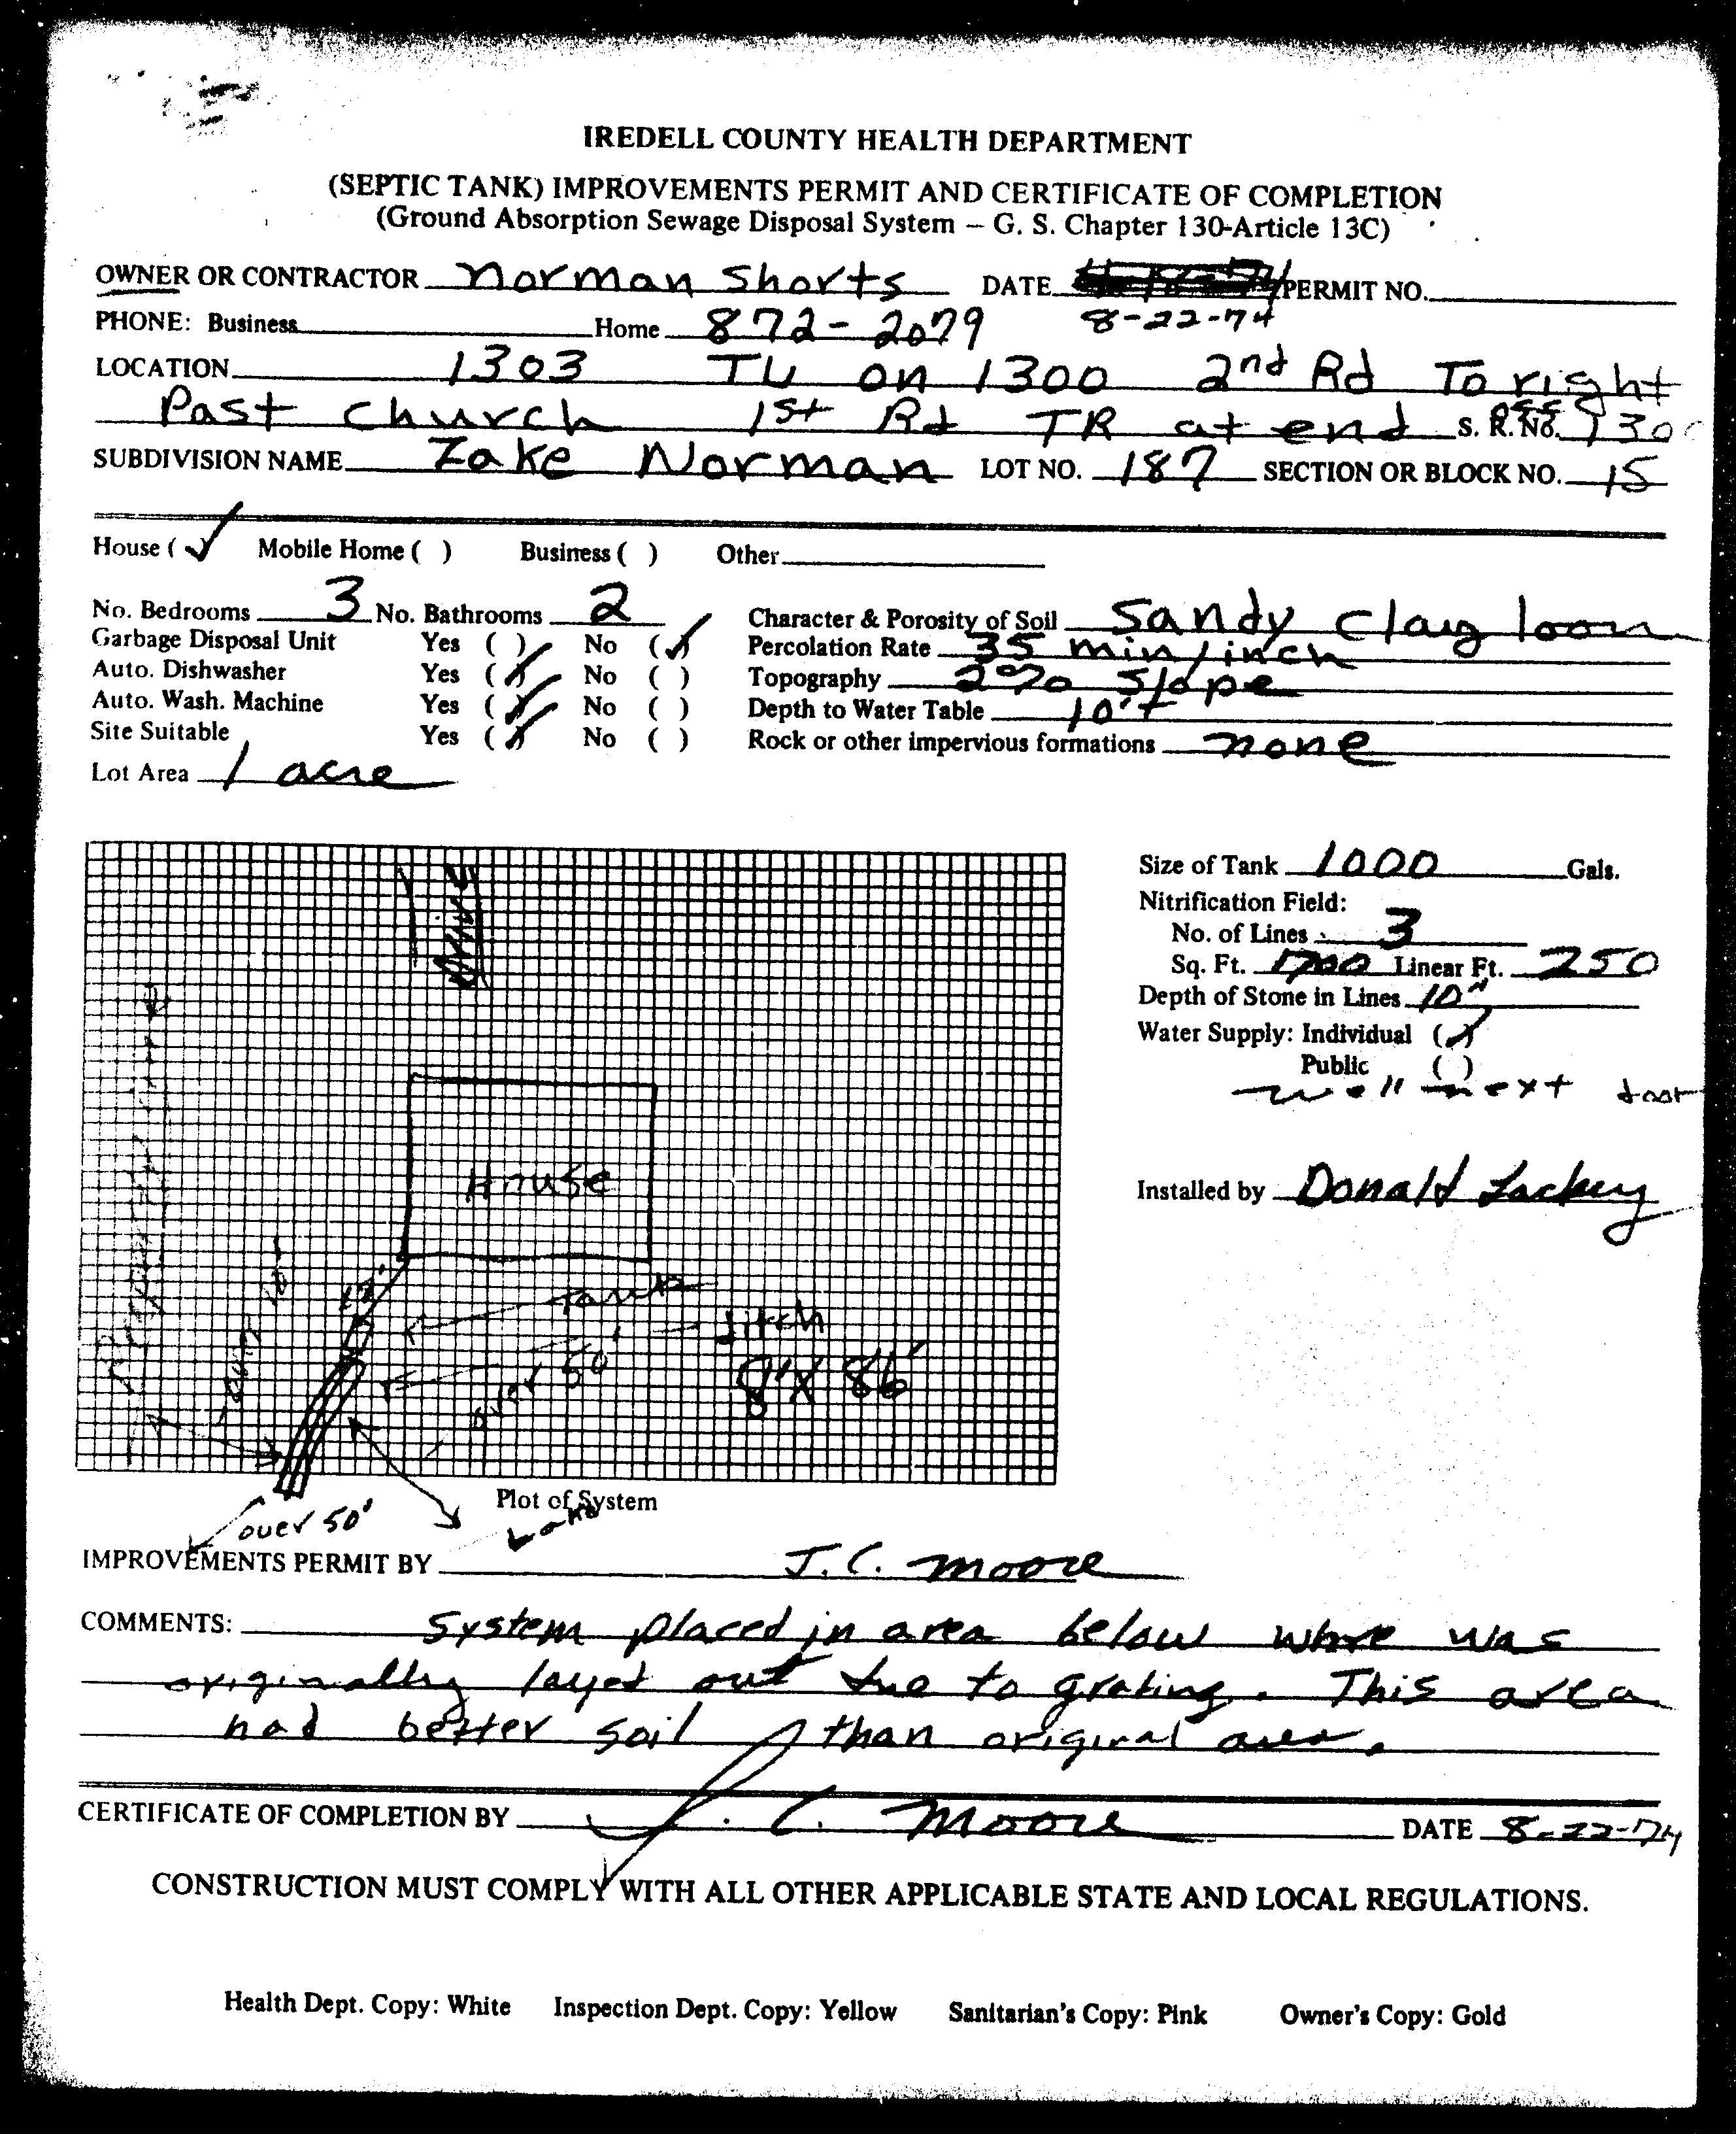 IREDELL COUNTY HEALTH DEPARTMENT
(SEPTIC TANK) IMPROVEMENTS PERMIT AND CERTIFICATE OF COMPLETION
(Ground Absorption Sewage Disposal System – G. S. Chapter 130-Article 13C)
OWNER OR CONTRACTOR Norman Shorts DATE PERMIT NO.
PHONE: Business Home 872-2079 8-22-74
LOCATION 1303 TL on 1300 2nd Rd To right
Past church 1st Rd TR at end off S. R. No. 1300
SUBDIVISION NAME Lake Norman LOT NO. 187 SECTION OR BLOCK NO. 15
House (✓) Mobile Home ( ) Business ( ) Other
No. Bedrooms 3 No. Bathrooms 2 Character & Porosity of Soil Sandy clay loom
Garbage Disposal Unit Yes ( ) No (✓) Percolation Rate 35 min/inch
Auto. Dishwasher Yes (✓) No ( ) Topography 2% slope
Auto. Wash. Machine Yes (✓) No ( ) Depth to Water Table 10'+
Site Suitable Yes (✓) No ( ) Rock or other impervious formations none
Lot Area 1 acre
Size of Tank 1000 Gals.
Nitrification Field:
No. of Lines 3
Sq. Ft. Linear Ft. 250
Depth of Stone in Lines 10"
Water Supply: Individual (✓)
Public ( )
well next door
Installed by Donald Lackey
Drive
House
12'
Tank
ditch
over 50'
8'X 86'
over 50'
Plot of System
Lake
IMPROVEMENTS PERMIT BY J. C. Moore
COMMENTS: System placed in area below where was
originally layed out due to grading. This area
had better soil than original area.
CERTIFICATE OF COMPLETION BY J. C. Moore DATE 8-22-74
CONSTRUCTION MUST COMPLY WITH ALL OTHER APPLICABLE STATE AND LOCAL REGULATIONS.
Health Dept. Copy: White Inspection Dept. Copy: Yellow Sanitarian's Copy: Pink Owner's Copy: Gold